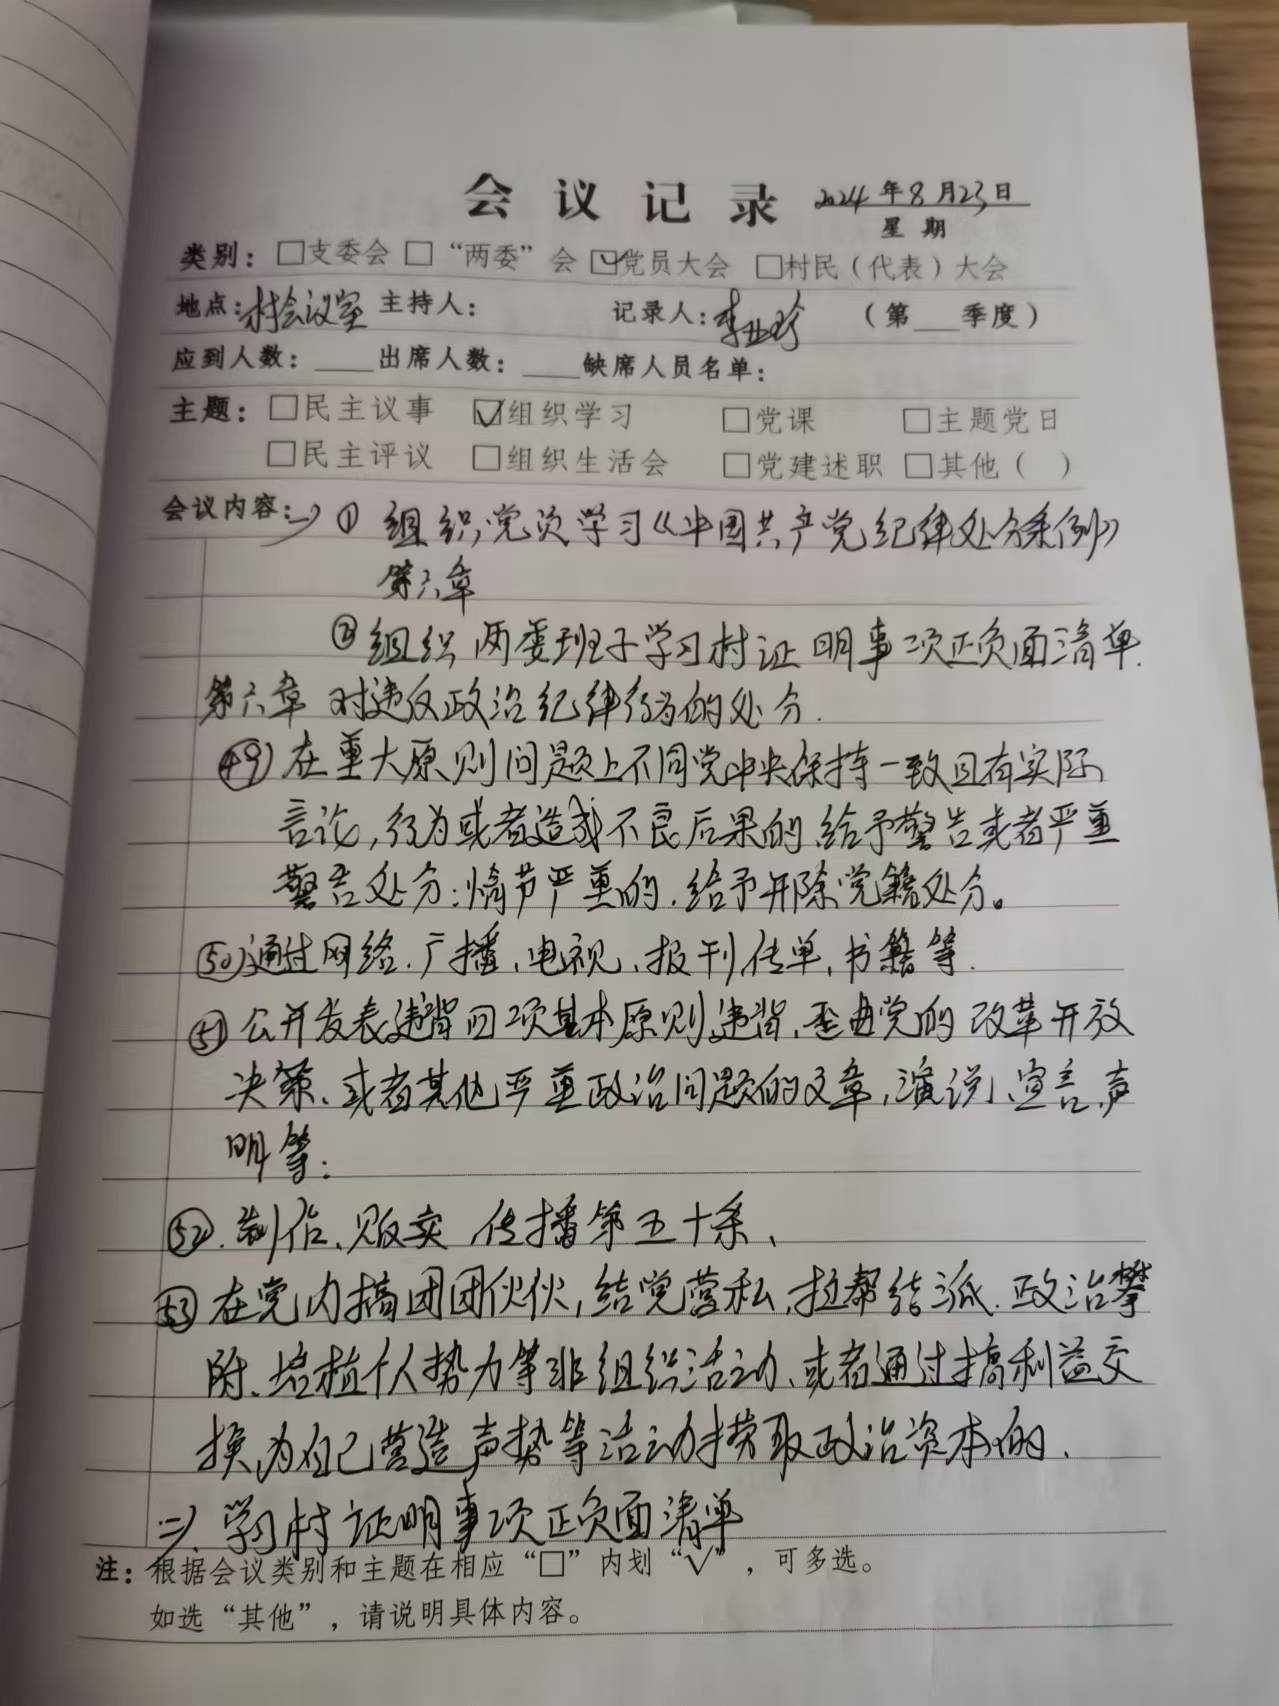 会议记录 2024年8月23日
星期
类别：□支委会 □“两委”会 ☑党员大会 □村民（代表）大会
地点：村会议室 主持人： 记录人：李亚珍 （第___季度）
应到人数：____出席人数：____缺席人员名单：
主题：□民主议事 ☑组织学习 □党课 □主题党日
□民主评议 □组织生活会 □党建述职 □其他（ ）
会议内容：一、① 组织党员学习《中国共产党纪律处分条例》
第六章
② 组织两委班子学习村证明事项正负面清单.
第六章 对违反政治纪律行为的处分.
㊾在重大原则问题上不同党中央保持一致且有实际
言论,行为或者造成不良后果的,给予警告或者严重
警告处分;情节严重的.给予开除党籍处分。
㊿通过网络.广播、电视、报刊,传单,书籍等.
(51)公开发表违背四项基本原则,违背、歪曲党的改革开放
决策、或者其他严重政治问题的文章,演说、宣言,声
明等:
(52).制作、贩卖,传播第五十条、
(53)在党内搞团团伙伙,结党营私,拉帮结派.政治攀
附、培植个人势力等非组织活动、或者通过搞利益交
换,为自己营造声势等活动捞取政治资本的、
二、学习村证明事项正负面清单
注：根据会议类别和主题在相应“□”内划“√”，可多选。
如选“其他”，请说明具体内容。